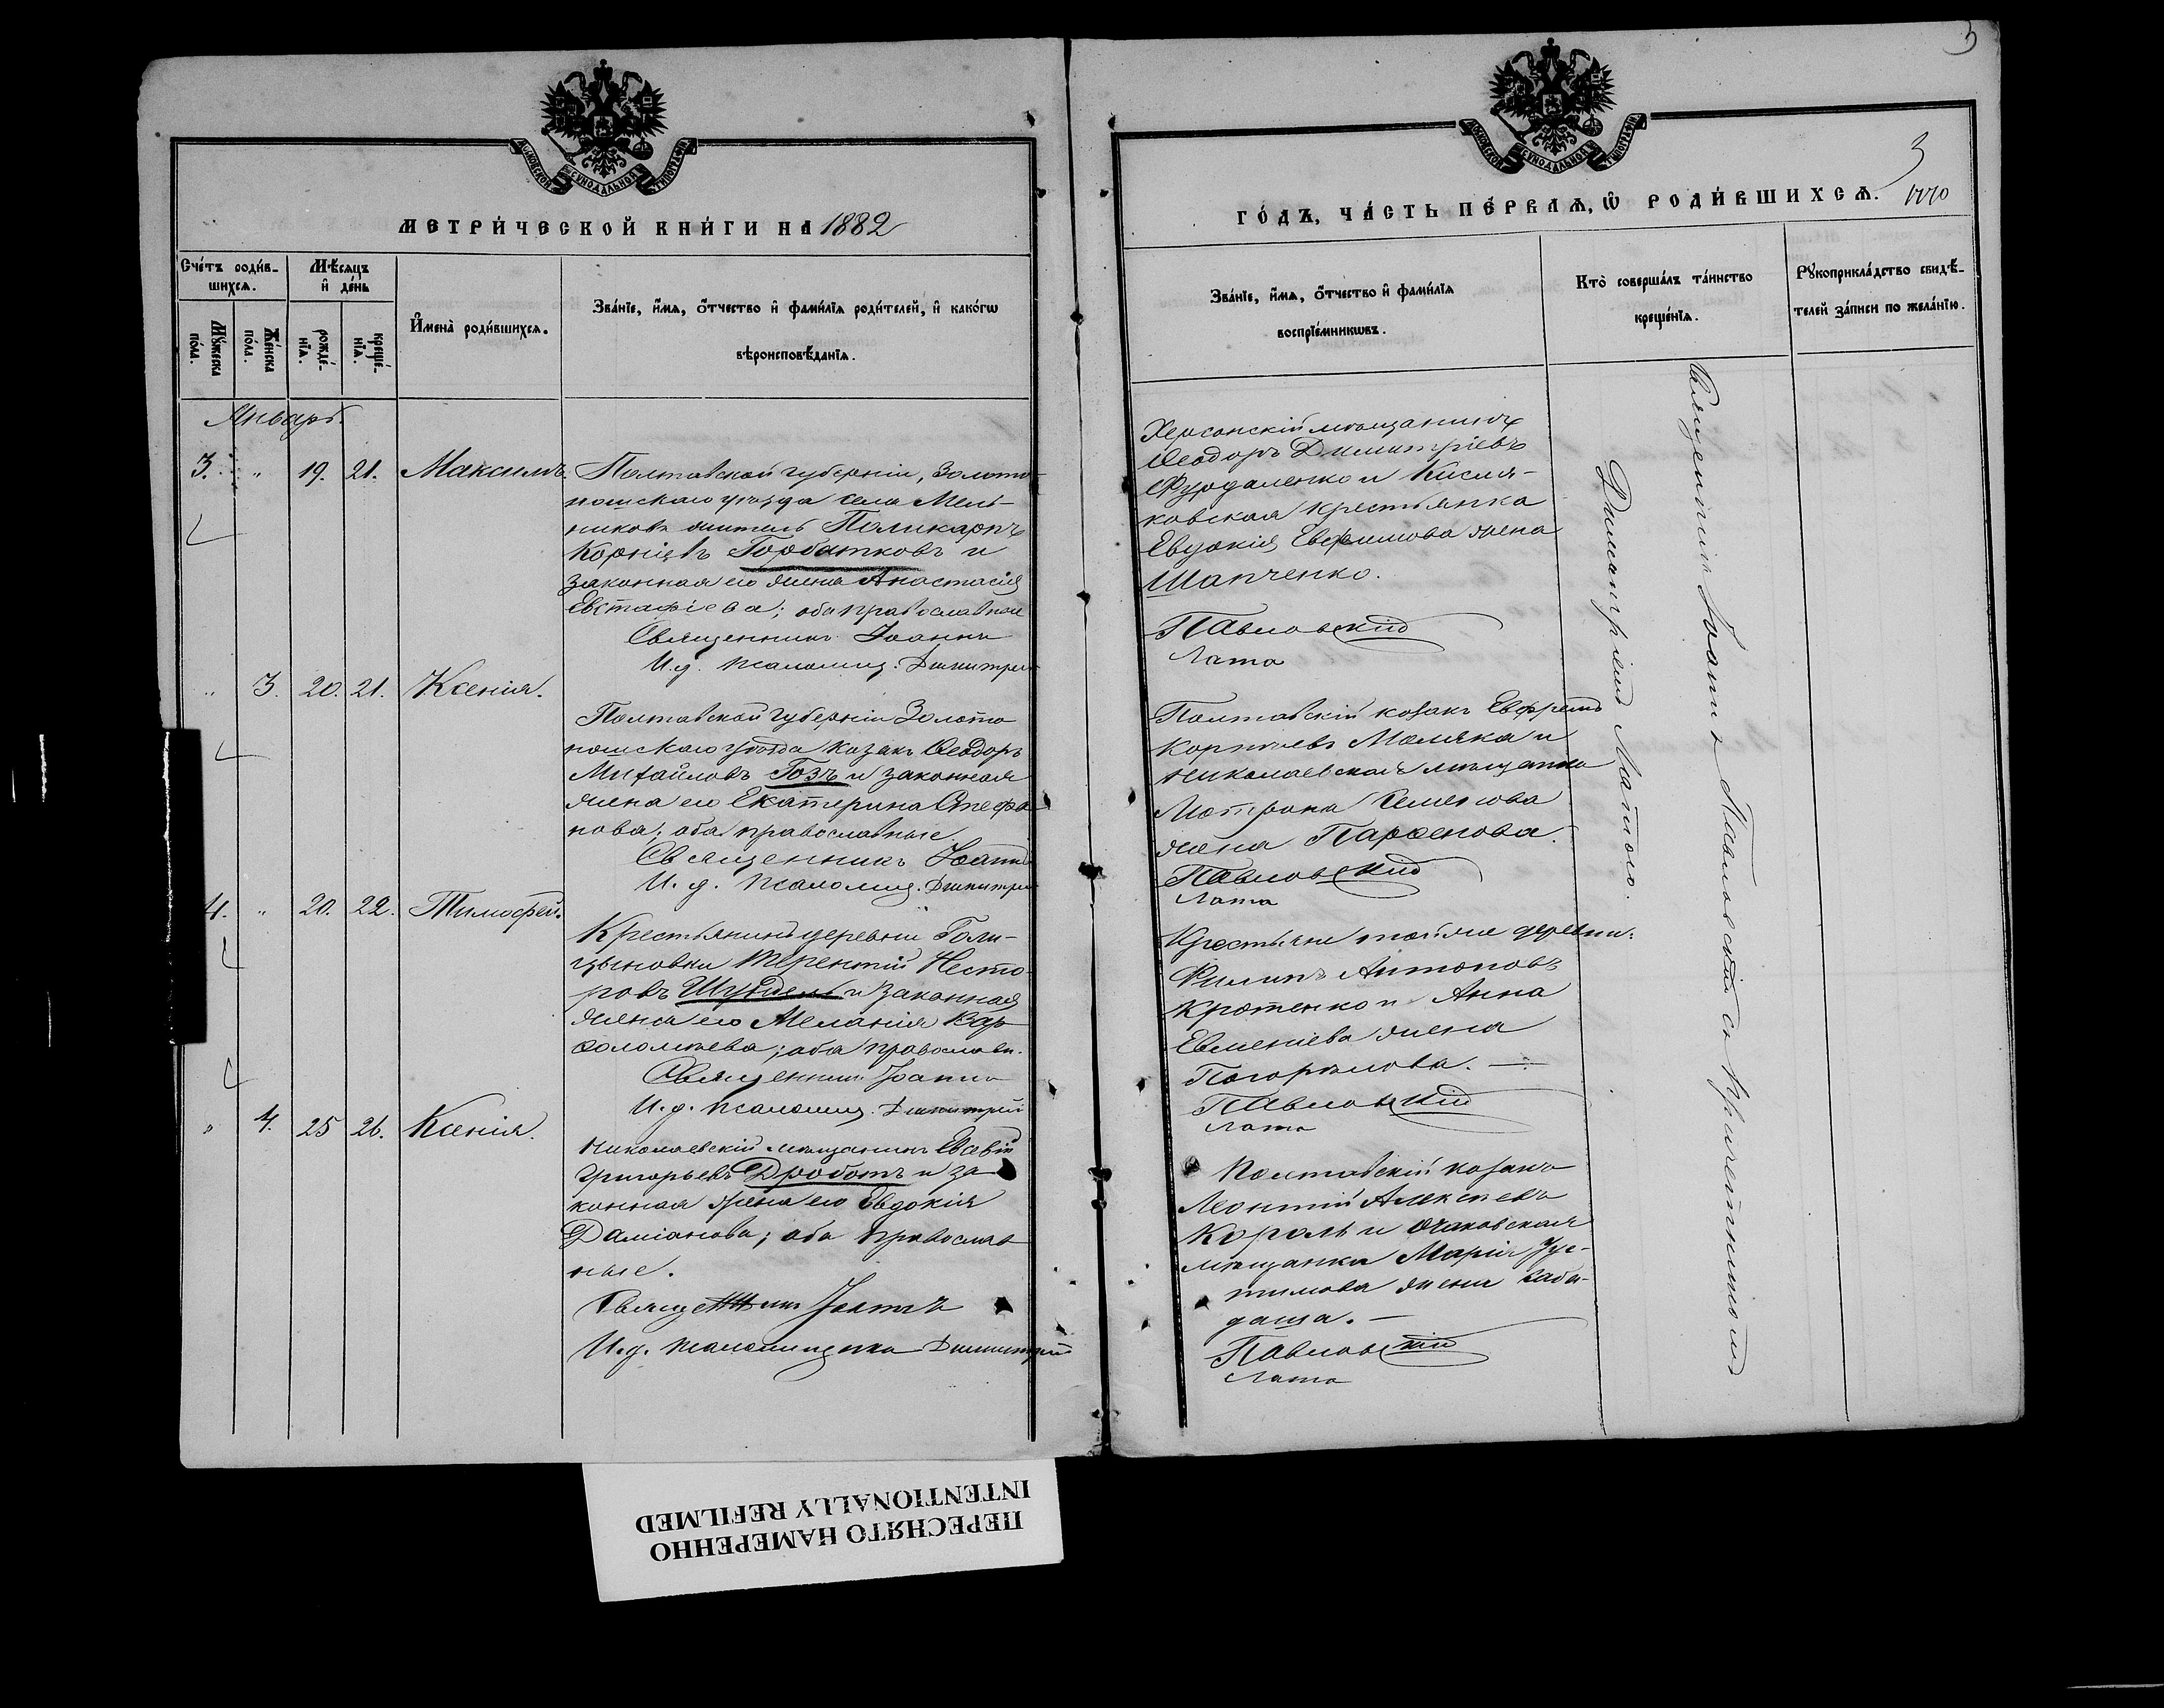 3
МОСКОВСКОЙ СѴНОДАЛЬНОЙ ТИПОГРАФІИ
МЕТРИ́ЧЕСКОЙ КНИ́ГИ НА 1882
Сче́тъ роди́в-
шихся.
Мѣ́сяцъ
и҆ де́нь
Мꙋ́жеска
по́ла.
Же́нска
по́ла.
рожде́-
нїѧ.
креще́-
нїѧ.
И҆мена̀ роди́вшихся.
Зва́нїе, и҆́мѧ, ѻ҆́тчество и҆ фами́лїѧ роди́телей, и҆ како́гѡ
вѣроисповѣ́данїѧ.
Январь.
3. " 19. 21. Максимъ.
Полтавской губерніи, Золото-
ношскаго уѣзда села Мель-
никовъ житель Поликарпъ
Корніевъ Горбатковъ и
законная его жена Анастасія
Евстафіева; оба православные
Священникъ Іоаннъ
И.д. псаломщ. Димитрій
" 3. 20. 21. Ксенія.
Полтавской губерніи Золото
ношскаго уѣзда козакъ Ѳеодоръ
Михайловъ Гозъ и законная
жена его Екатерина Стефа
нова; оба православные
Священникъ Іоаннъ
И. д. псаломщ. Димитрій
4. " 20. 22. Тимофей.
Крестьянинъ деревни Голи-
цыновки Терентій Несто-
ровъ и законная
жена его Меланія Вар
ѳоломѣева; оба православн.
Священникъ Іоаннъ
И. д. псаломщ. Димитрій
" 4. 25 26. Ксенія.
Николаевскій мѣщанинъ Евсевій
Григорьевъ Дроботъ и за
конная жена его Евдокія
Даміанова; оба православ
ные.
Священникъ Іоаннъ
И.д. псаломщика Димитрій
МОСКОВСКОЙ СѴНОДАЛЬНОЙ ТИПОГРАФІИ
3
ГО́ДЪ, ЧА́СТЬ ПЕ́РВАѦ, Ѡ҆ РОДИ́ВШИХСѦ.
Зва́нїе, и҆́мѧ, ѻ҆́тчество и҆ фами́лїѧ
воспрїе́мникѡвъ.
Кто̀ соверша́лъ та́инство
креще́нїѧ.
Рꙋкоприкла́дство свидѣ́-
телей за́писи по жела́нїю.
Херсонскій мѣщанинъ
Ѳеодоръ Димитріевъ
и Кисля-
ковская крестьянка
Евдокія Евфимова жена
Шапченко.
Павловскій
Лата
Полтавскій козакъ Евфремъ
Корнѣевъ Маляка и
Николаевская мѣщанка
Мотрона Семенова
жена Парѳенова.
Павловскій
Лата
Крестьяне той же деревни:
Филипъ Антоновъ
Кротенко и Анна
Евменіева жена
Погорѣлова.
Павловскій
Лата
Полтавскій козакъ
Леонтій Алексѣевъ
Король и Очаковская
мѣщанка Марія Іус-
тинова жена Саба-
даша.
Павловскій
Лата
Священникъ Іоаннъ Павловскій съ причетникомъ
Димитріемъ Латою.
ПЕРЕСНЯТО НАМЕРЕННО
INTENTIONALLY REFILMED